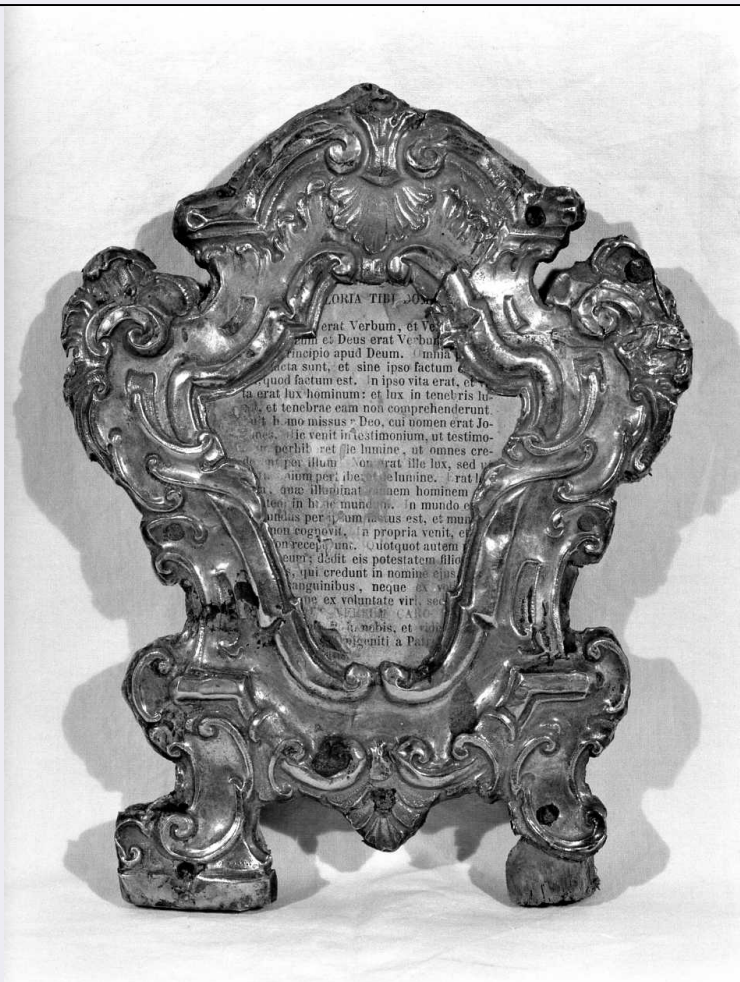 LORIA TIBI DOM
erat Verbum, et Ve
et Deus erat Verbum
rincipio apud Deum. Omnia
acta sunt, et sine ipso factum
quod factum est. In ipso vita erat, et
ta erat lux hominum: et lux in tenebris lu-
et tenebrae eam non comprehenderunt.
homo missus Deo, cui nomen erat Jo-
ic venit in testimonium, ut testimo-
perhiberet de lumine, ut omnes cre-
per illum. Non erat ille lux, sed
perhiberet de lumine. Erat
quæ illuminat omnem hominem
in hunc mundum. In mundo
undus per ipsum factus est, et mun
non cognovit. In propria venit, e
on receperunt. Quotquot autem
eum; dedit eis potestatem filio
, qui credunt in nomine ejus
anguinibus, neque ex vo
ex voluntate viri, sed
VERBUM CARO
nobis, et vidi
nigeniti a Pat